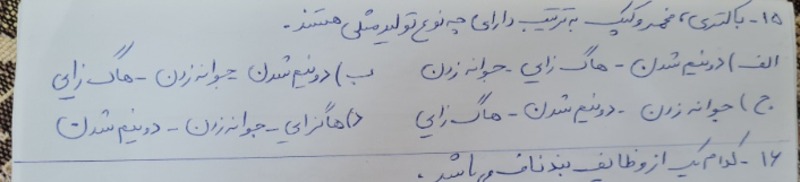 ۱۵- باکتری، مخمر و کپک به ترتیب دارای چه نوع تولید مثلی هستند.
الف) دو نیم شدن - هاگ زایی - جوانه زدن ب) دو نیم شدن - جوانه زدن - هاگ زایی
ج) جوانه زدن - دو نیم شدن - هاگ زایی د) هاگزایی - جوانه زدن - دو نیم شدن
۱۶- کدام یک از وظایف بند ناف می باشد.